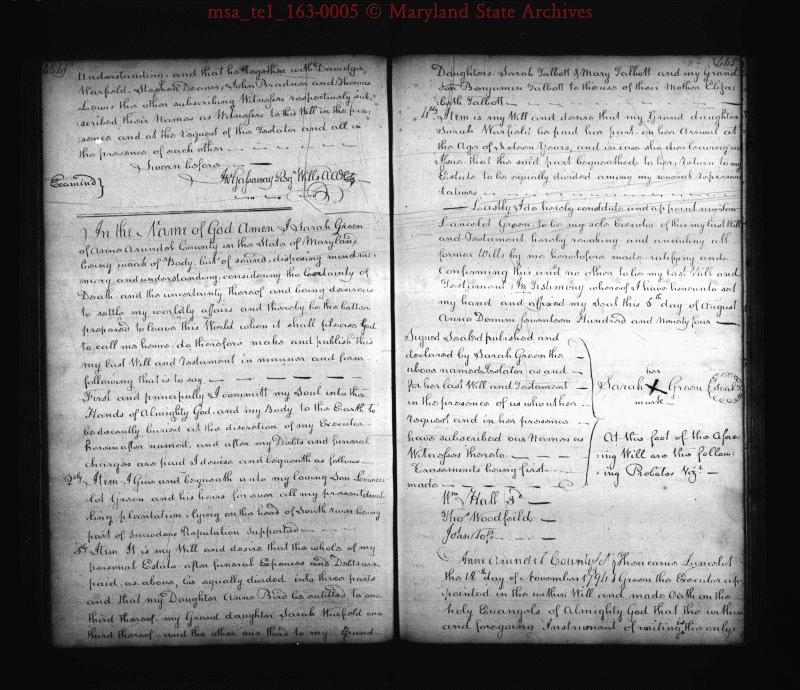 msa_te1_163-0005 © Maryland State Archives
444
Understanding, and that he together with Davidge
Warfield, Stephen Beavor, John Bradnor and Thomas
Lewis the other subscribing Witnesses respectively sub-
scribed their Names as Witnesses to this Will in the pre-
sence and at the request of this Testator and all in
the presence of each other
Sworn before
Jno Gassaway Reg Wills A A Coty
Examind
In the Name of God Amen I Sarah Green
of Anne Arundel County in the State of Maryland
being weak of Body, but of sound, disposing mind me-
mory and understanding, considering the Certainty of
Death, and the uncertainty thereof and being desirous
to settle my worldly affairs and thereby be the better
prepared to leave this World when it shall please God
to call me hence, do therefore make and publish this
my last Will and Testament in manner and form
following that is to say
First and principally I committ my Soul into the
Hands of Almighty God, and my Body to the Earth to
be decently buried at the discretion of my Executor
herein after named, and after my Debts and funeral
charges are paid I devise and bequeath as follows
2dly Item I Give and bequeath unto my loving Son Lance-
lot Green and his heirs for ever all my present dwel-
ling plantation, lying on the head of South river being
part of Snowdens Reputation Supported
3d Item It is my Will and desire that the whole of my
personal Estate, after funeral Expences and Debts are
paid, as above, be equally divided into three parts
and that my Daughter Anne Bird be entitled to one
third thereof, my Grand daughter Sarah Warfield one
third thereof and the other one third to my Grand
445
Daughters, Sarah Talbott & Mary Talbott, and my Grand
Son Benjamin Talbott to the use of their Mother Eliza-
beth Talbott
4th Item is my Will and desire that my Grand daughter
Sarah Warfield be paid her part, on her Arrival at
the Age of Sixteen Years, and in case she die leaving no
Issue that the said part bequeathed to her, return to my
Estate to be equally divided among my several represen-
tatives
Lastly I do hereby constitute and appoint my Son
Lancelot Green to be my sole Executor of this my last Will
and Testament, hereby revoking and annuling all
former Wills by me heretofore made, ratifying and
Confirming this and no other to be my last Will and
Testament. In Testimony whereof I have hereunto set
my hand and affixed my Seal this 5th day of August
Anno Domini seventeen Hundred and Ninety four
Signed Sealed published and
declared by Sarah Green the
above named Testator as and
for her last Will and Testament
in the presence of us who at her
request and in her presence
have subscribed our Names as
Witnesses thereto
Erasements being first
made
her
Sarah X Green Seal
mark
At the foot of the afore-
ing Will are the follow-
ing Probates Vizt
Wm Hall 3d
Thos Woodfeild
John
Anne Arundel County Sct
the 12th day of November 1794
Then came Lancelot
Green the Executor ap-
pointed in the within Will and made Oath on the
holy Evangels of Almighty God that the within
and foregoing Instrument of writing is the only